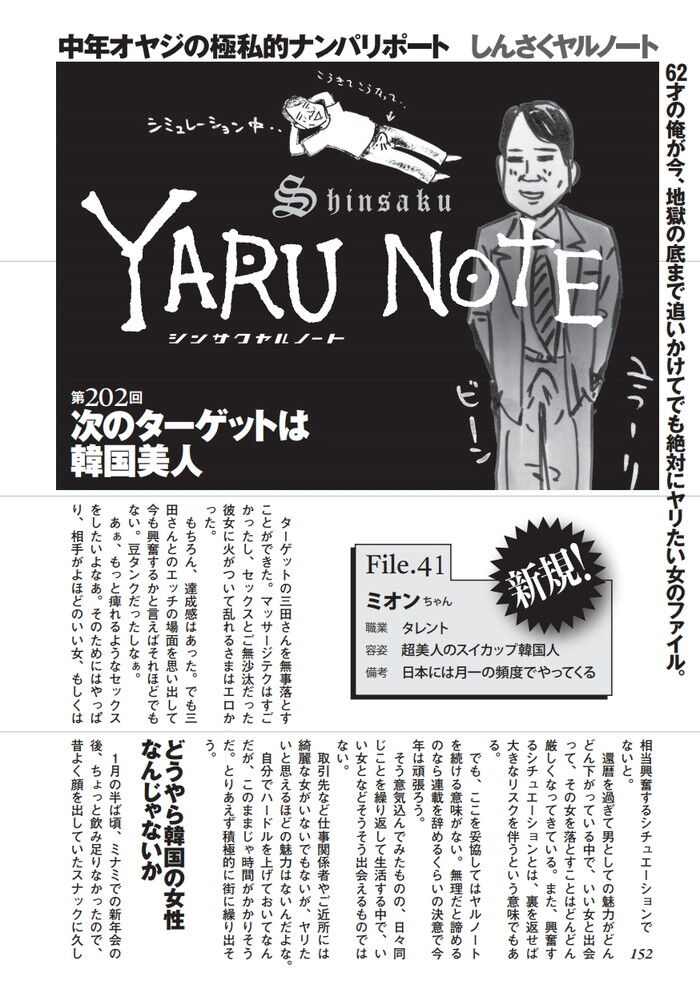 中年オヤジの極私的ナンパリポート　しんさくヤルノート
62才の俺が今、地獄の底まで追いかけてでも絶対にヤリたい女のファイル。
こうきてこうなって・・
シミュレーション中・・
Shinsaku
YARU NOTE
シンサクヤルノート
ビーン
第202回
次のターゲットは
韓国美人
新規!
File.41
ミオンちゃん
職業　タレント
容姿　超美人のスイカップ韓国人
備考　日本には月一の頻度でやってくる
ターゲットの三田さんを無事落とす
ことができた。マッサージテクはすご
かったし、セックスとご無沙汰だった
彼女に火がついて乱れるさまはエロか
った。
もちろん、達成感はあった。でも三
田さんとのエッチの場面を思い出して
今も興奮するかと言えばそれほどでも
ない。豆タンクだったしなぁ。
あぁ、もっと痺れるようなセックス
をしたいよなあ。そのためにはやっぱ
り、相手がよほどのいい女、もしくは
相当興奮するシチュエーションで
ないと。
還暦を過ぎて男としての魅力がどん
どん下がっている中で、いい女と出会
って、その女を落とすことはどんどん
厳しくなってきている。また、興奮す
るシチュエーションとは、裏を返せば
大きなリスクを伴うという意味でもあ
る。
でも、ここを妥協してはヤルノート
を続ける意味がない。無理だと諦める
のなら連載を辞めるくらいの決意で今
年は頑張ろう。
そう意気込んでみたものの、日々同
じことを繰り返して生活する中で、い
い女となどそうそう出会えるものでは
ない。
取引先など仕事関係者やご近所には
綺麗な女がいないでもないが、ヤリた
いと思えるほどの魅力はないんだよな。
自分でハードルを上げておいてなん
だが、このままじゃ時間がかかりそう
だ。とりあえず積極的に街に繰り出そ
う。
どうやら韓国の女性
なんじゃないか
1月の半ば頃、ミナミでの新年会の
後、ちょっと飲み足りなかったので、
昔よく顔を出していたスナックに久し
152